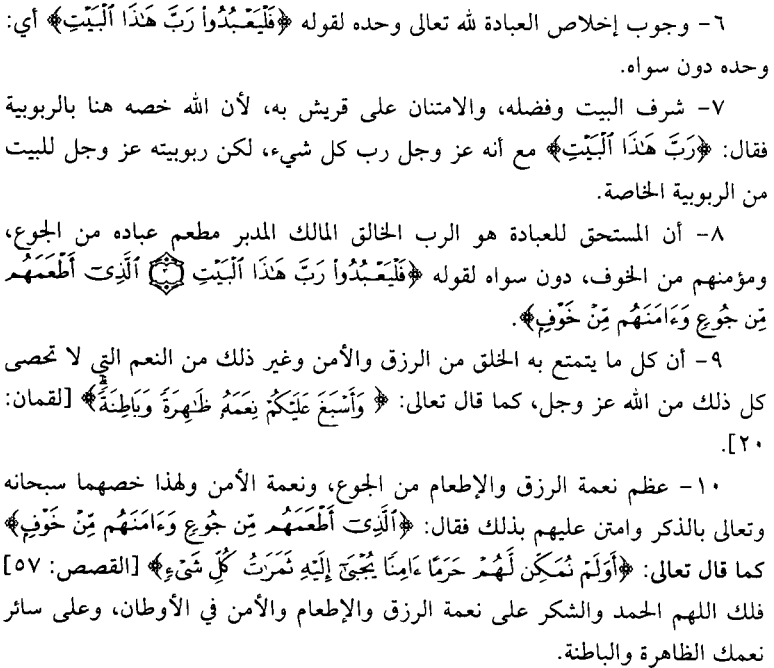 ٦- وجوب إخلاص العبادة لله تعالى وحده لقوله ﴿فَلْيَعْبُدُوا۟ رَبَّ هَـٰذَا ٱلْبَيْتِ﴾ أي:
وحده دون سواه.
٧- شرف البيت وفضله، والامتنان على قريش به، لأن الله خصه هنا بالربوبية
فقال: ﴿رَبَّ هَـٰذَا ٱلْبَيْتِ﴾ مع أنه عز وجل رب كل شيء، لكن ربوبيته عز وجل للبيت
من الربوبية الخاصة.
٨- أن المستحق للعبادة هو الرب الخالق المالك المدبر مطعم عباده من الجوع،
ومؤمنهم من الخوف، دون سواه لقوله ﴿فَلْيَعْبُدُوا۟ رَبَّ هَـٰذَا ٱلْبَيْتِ ۝٣ ٱلَّذِىٓ أَطْعَمَهُم
مِّن جُوعٍ وَءَامَنَهُم مِّنْ خَوْفٍۭ﴾.
٩- أن كل ما يتمتع به الخلق من الرزق والأمن وغير ذلك من النعم التي لا تحصى
كل ذلك من الله عز وجل، كما قال تعالى: ﴿وَأَسْبَغَ عَلَيْكُمْ نِعَمَهُۥ ظَـٰهِرَةً وَبَاطِنَةً ۗ﴾ [لقمان:
٢٠].
١٠- عظم نعمة الرزق والإطعام من الجوع، ونعمة الأمن ولهذا خصهما سبحانه
وتعالى بالذكر وامتن عليهم بذلك فقال: ﴿ٱلَّذِىٓ أَطْعَمَهُم مِّن جُوعٍ وَءَامَنَهُم مِّنْ خَوْفٍۭ﴾
كما قال تعالى: ﴿أَوَلَمْ نُمَكِّن لَّهُمْ حَرَمًا ءَامِنًا يُجْبَىٰٓ إِلَيْهِ ثَمَرَٰتُ كُلِّ شَىْءٍ﴾ [القصص: ٥٧]
فلك اللهم الحمد والشكر على نعمة الرزق والإطعام والأمن في الأوطان، وعلى سائر
نعمك الظاهرة والباطنة.